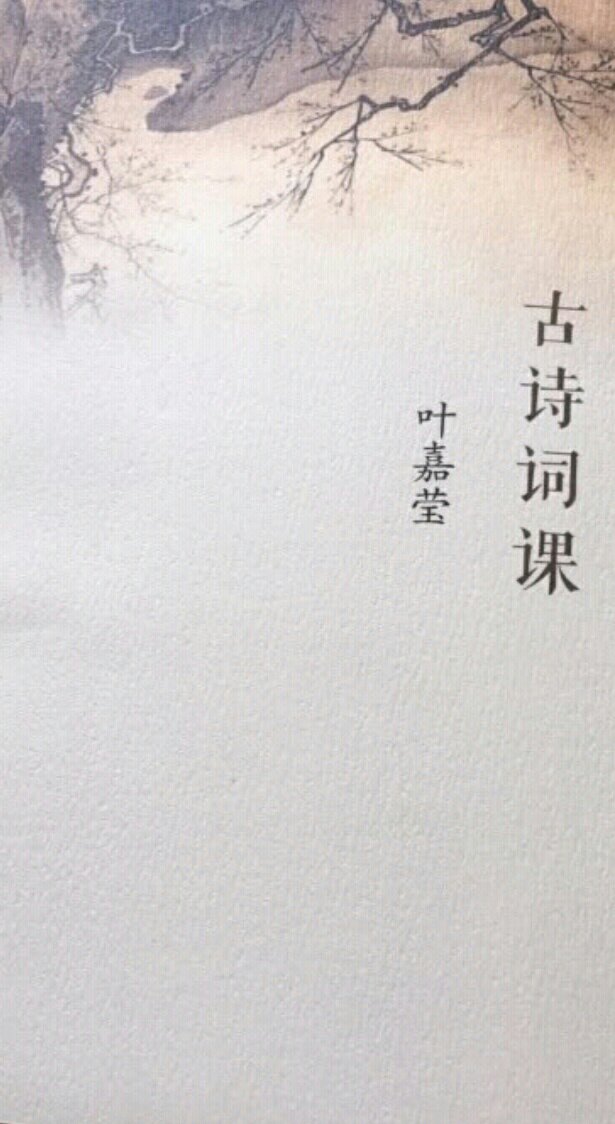 古诗词课
叶嘉莹